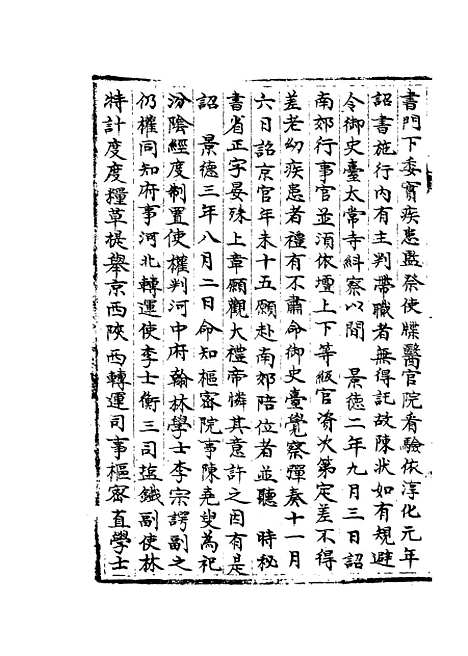 書門下委實疾患監祭使牒醫官院看驗依淳化元年
詔書施行内有主判帶職者無得託故陳狀如有規避
令御史臺太常寺糾察以聞　景德二年九月三日詔
南郊行事官並湏依壇上下等級官資次第定差不得
差老幼疾患者禮有不肅命御史臺覺察彈奏十一月
六日詔京官年未十五願赴南郊陪位者並聽　時秘
書省正字晏殊上章願觀大禮帝憐其意許之因有是
詔　景德三年八月二日命知樞宻院事陳堯叟為祀
汾陰經度制置使權判河中府翰林學士李宗諤副之
仍權同知府事河北轉運使李士衡三司塩鐵副使林
特計度度糧草提舉京西陜西轉運司事樞宻直學士